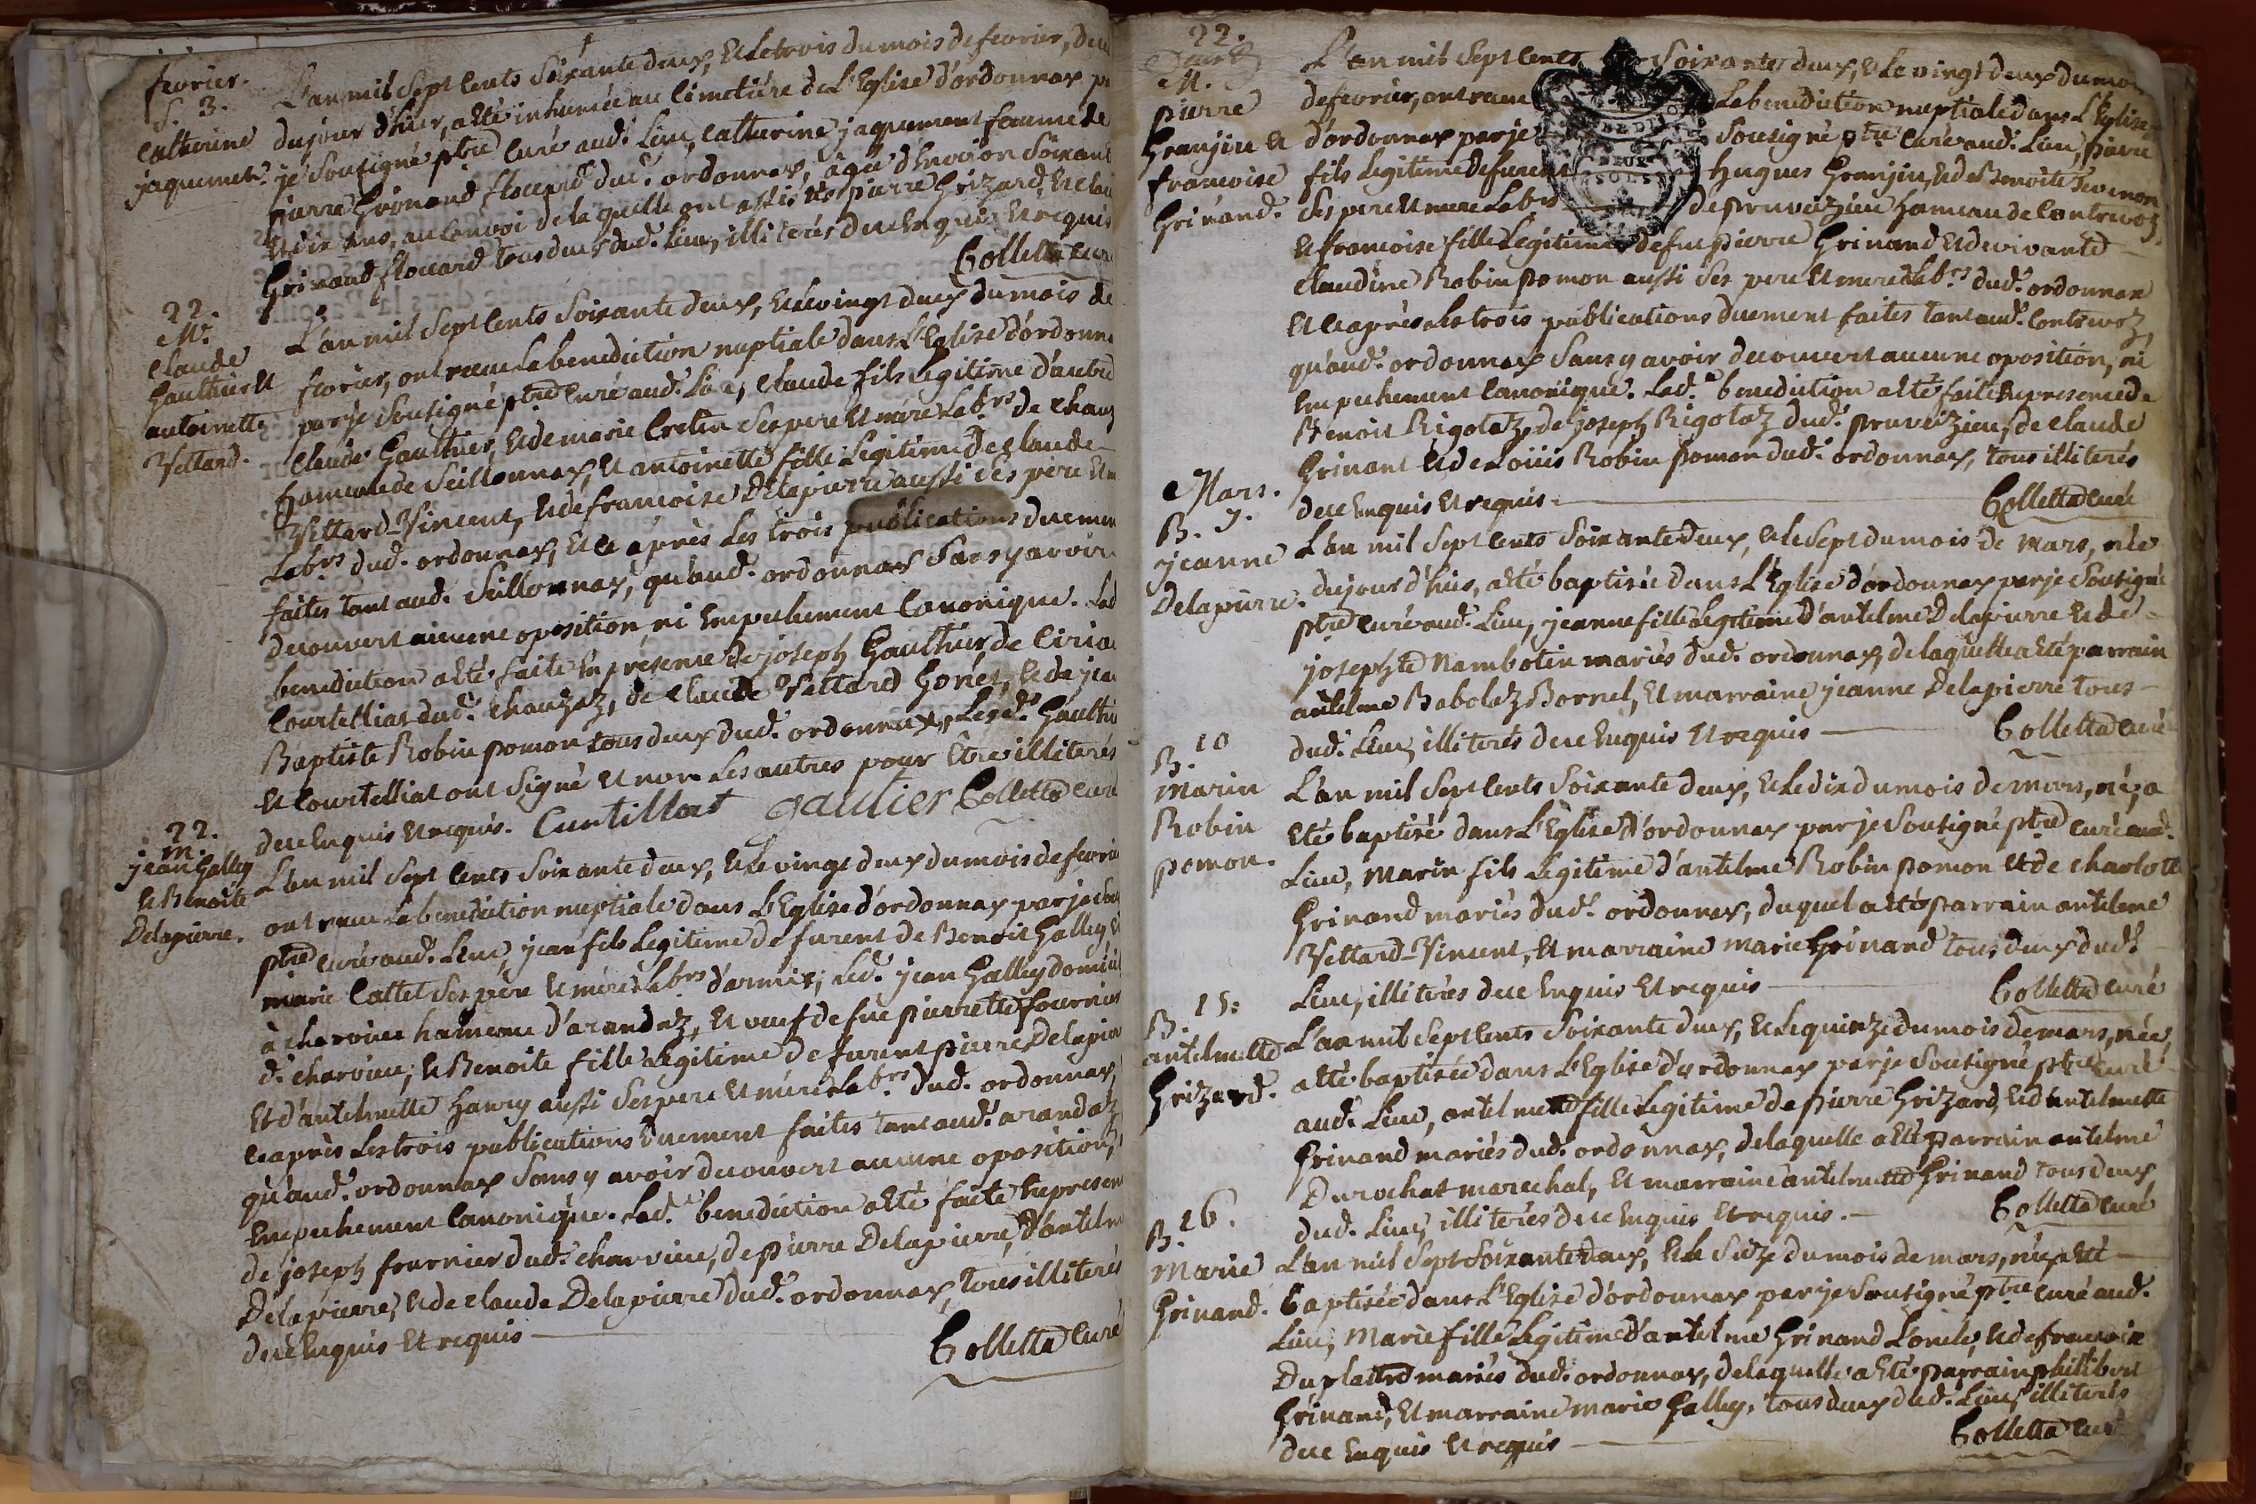 fevrier.
S. 3.
Catherine
jaquemet.
L'an mil sept cents soixante deux, et le trois du mois de fevrier,
du jour d'hier, a été inhumée au cimetière de L'Eglise d'ordonnax
je sousigné ptre curé aud. Lieu, Catherine jaquemet femme de
pierre Grinand floccard dud. ordonnax, agée d'environ soixante
et dix ans, au convoi de laquelle ont assistés pierre Grizard, et
Grinand flocard tous deux dud. Lieu, illiterés de ce enquis et requis
Colletta curé
22.
M.
Claude
Gaulthier et
antoinette
Vettard.
L'an mil sept cents soixante deux, et le vingt deux du mois de
fevrier, ont reçu la benediction nuptiale dans L'Eglise d'ordonnax
par je sousigné ptre curé aud. Lieu, Claude fils legitime d'autre
Claude Gaulthier, et de marie Cretin ses pere et mere Labrs de
hameau de Seillonnax, et antoinette fille Legitime de Claude
Vettard-Vincent, et de françoise Delapierre aussi ses père et
Labrs dud. ordonnax, et ce après les trois publications duement
faites tant aud. Seillonnax, qu'aud. ordonnax sans y avoir
decouvert aucune oposition, ni empechement canonique. Lad.
benediction a été faite en présence de joseph Gaulthier, de
Courtelliat dud. chauzaz, de Claude Vettard Gonet, et de jean
Baptiste Robin pomon tous deux dud. ordonnax, Lesd. Gaulthier
et Courtelliat ont signé et non les autres pour être illiterés
de ce enquis et requis. Curtillat gautier Colletta curé
22.
m.
jean Galley
et Benoite
Delapierre.
L'an mil sept cents soixante deux, et le vingt deux du mois de fevrier
ont reçu la benediction nuptiale dans L'Eglise d'ordonnax par je
ptre curé aud. Lieu, jean fils Legitime de furent de Benoit Galley et
marie Cattet ses père et mère Labrs d'armix; led. jean Galley
à charvieu hameau d'arandaz, et veuf de fue pierrette fournier
d. charvieu; et Benoite fille Legitime de furent pierre Delapierre
et d'antelmette hanry aussi ses pere et mere Labrs dud. ordonnax,
et ce après les trois publications duement faites tant aud. arandaz
qu'aud. ordonnax sans y avoir decouvert aucune oposition,
empechement canonique. Lad. benediction a été faite en presence
de joseph fournier dud. charvieu, de pierre Delapierre, d'antelme
Delapierre, et de claude Delapierre dud. ordonnax, tous illiterés
de ce enquis et requis
Colletta curé
22.
M.
pierre
Granjin et
françoise
Grinand.
L'an mil sept cents soixante deux, et le vingt deux du mois
de fevrier, ont reçu la benediction nuptiale dans L'Eglise
d'ordonnax par je sousigné ptre curé aud. Lieu, pierre
fils Legitime de furent hugues Granjin, et de Benoite
ses pere et mere Labrs de pruveizieu hameau de Contrevoz,
et françoise fille Legitime de feu pierre Grinand et de vivante
Claudine Robin pomon aussi ses pere et mere Labrs dud. ordonnax
et ce après les trois publications duement faites tant aud. Contrevoz,
qu'aud. ordonnax sans y avoir decouvert aucune oposition, ni
empechement canonique. Lad. benediction a été faite en presence de
Benoit Rigolaz, de joseph Rigolaz dud. pruveizieu, de claude
Grinant et de Loüis Robin pomon dud. ordonnax, tous illiterés
de ce enquis et requis.
Colletta curé
Mars.
B. 7.
jeanne
Delapierre.
L'an mil sept cents soixante deux, et le sept du mois de mars, née
du jour d'hier, a été baptisée dans L'Eglise d'ordonnax par je sousigné
ptre curé aud. Lieu, jeanne fille Legitime d'antelme Delapierre et de
josephte Nambotin mariés dud. ordonnax, de laquelle a été parrain
antelme Babolaz Bornel, et marraine jeanne Delapierre tous
dud. Lieu, illiterés de ce enquis et requis
Colletta curé
B. 10
Marin
Robin
pomon.
L'an mil sept cents soixante deux, et le dix du mois de mars, né, a
été baptisé dans L'Eglise d'ordonnax par je sousigné ptre curé aud.
Lieu, Marin fils Legitime d'antelme Robin pomon et de charlotte
Grinand mariés dud. ordonnax, duquel a été parrain antelme
Vettard-Vincent, et marraine marie Grinand tous deux dud.
Lieu, illiterés de ce enquis et requis
Colletta curé
B. 15.
antelmette
Grizard.
L'an mil sept cents soixante deux, et le quinze du mois de mars, née,
a été baptisée dans L'Eglise d'ordonnax par je sousigné ptre curé
aud. Lieu, antelmette fille Legitime de pierre Grizard, et d'antelmette
Grinand mariés dud. ordonnax, de laquelle a été parrain antelme
Durochat marechal, et marraine antelmette Grinand tous deux
dud. Lieu, illiterés de ce enquis et requis.
Colletta curé
B. 16.
Marie
Grinand.
L'an mil sept soixante deux, et le seize du mois de mars, née, a été
baptisée dans L'Eglise d'ordonnax par je sousigné ptre curé aud.
Lieu, Marie fille Legitime d'antelme Grinand Loncle, et de françoise
Duplattre mariés dud. ordonnax, de laquelle a été parrain philibert
Grinand, et marraine marie Galley, tous deux dud. Lieu, illiterés
de ce enquis et requis
Colletta curé